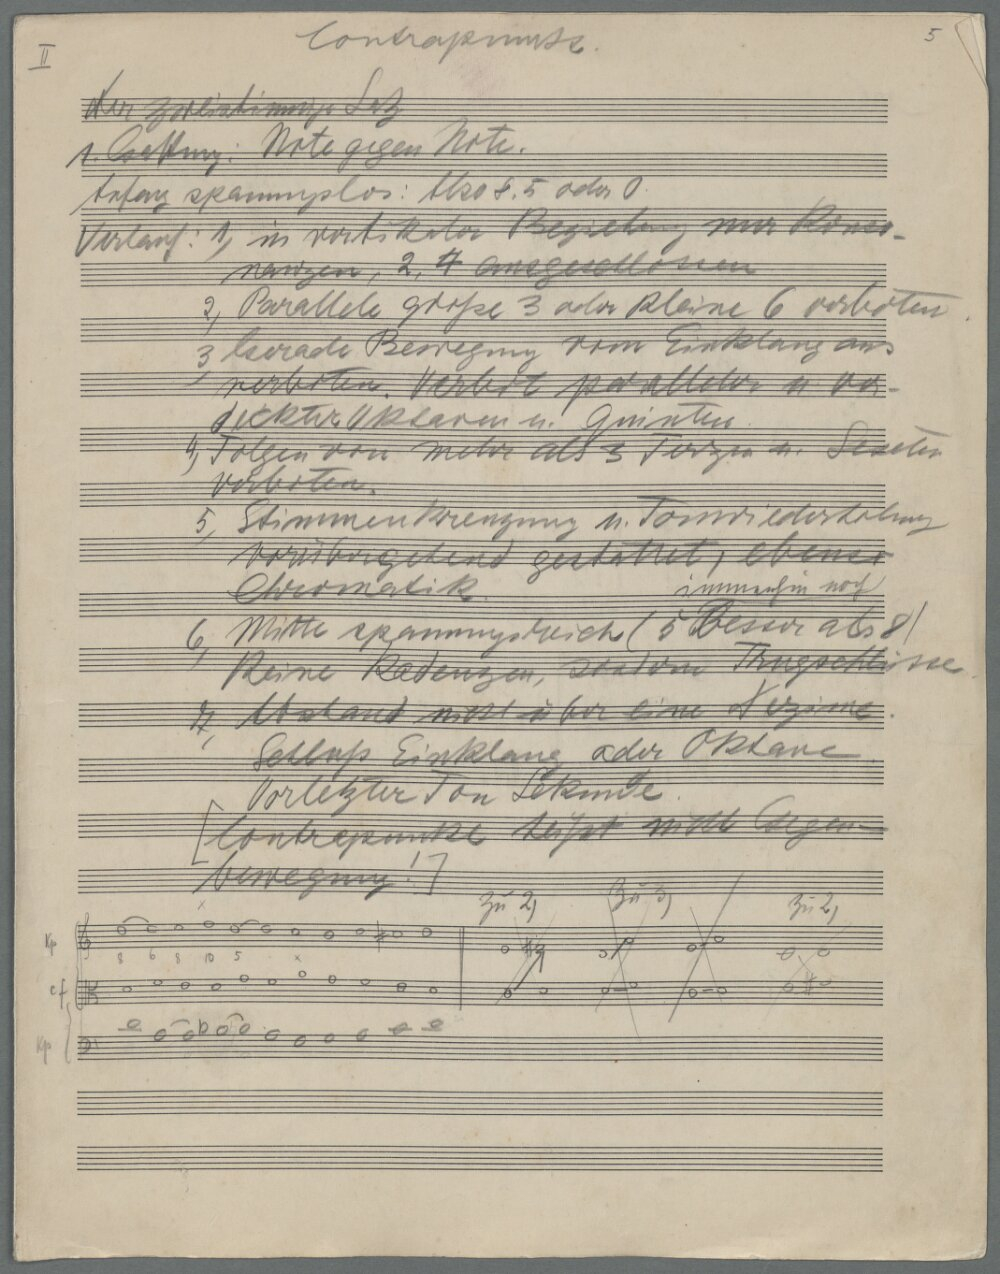 II
Contrapunkt.
5
Der zweistimmige Satz
1. Gattung: Note gegen Note.
Anfang spannungslos: Also 8, 5 oder 0.
Verlauf: 1, in vertikaler Beziehung nur Konso-
nanzen, 2, 4 ausgeschlossen
2, Parallele große 3 oder kleine 6 verboten.
3, Gerade Bewegung vom Einklang aus
verboten. Verbot paralleler u. ver-
deckter Oktaven u. Quinten.
4, Folgen von mehr als 3 Terzen u. Sexten
verboten.
5, Stimmenkreuzung u. Tonwiederholung
vorübergehend gestattet, ebenso
Chromatik.
immerhin noch
6, Mitte spannungsreich (5 besser als 8)
Keine Kadenzen, sondern Trugschlüsse.
7, Abstand nicht über eine Dezime.
Schluß Einklang oder Oktave
Vorletzter Ton Sekunde.
[Contrapunkt heißt nicht Gegen-
bewegung!]
Zu 2, Zu 3, Zu 2,
Kp
8 6 8 10 5 x
cf
Kp